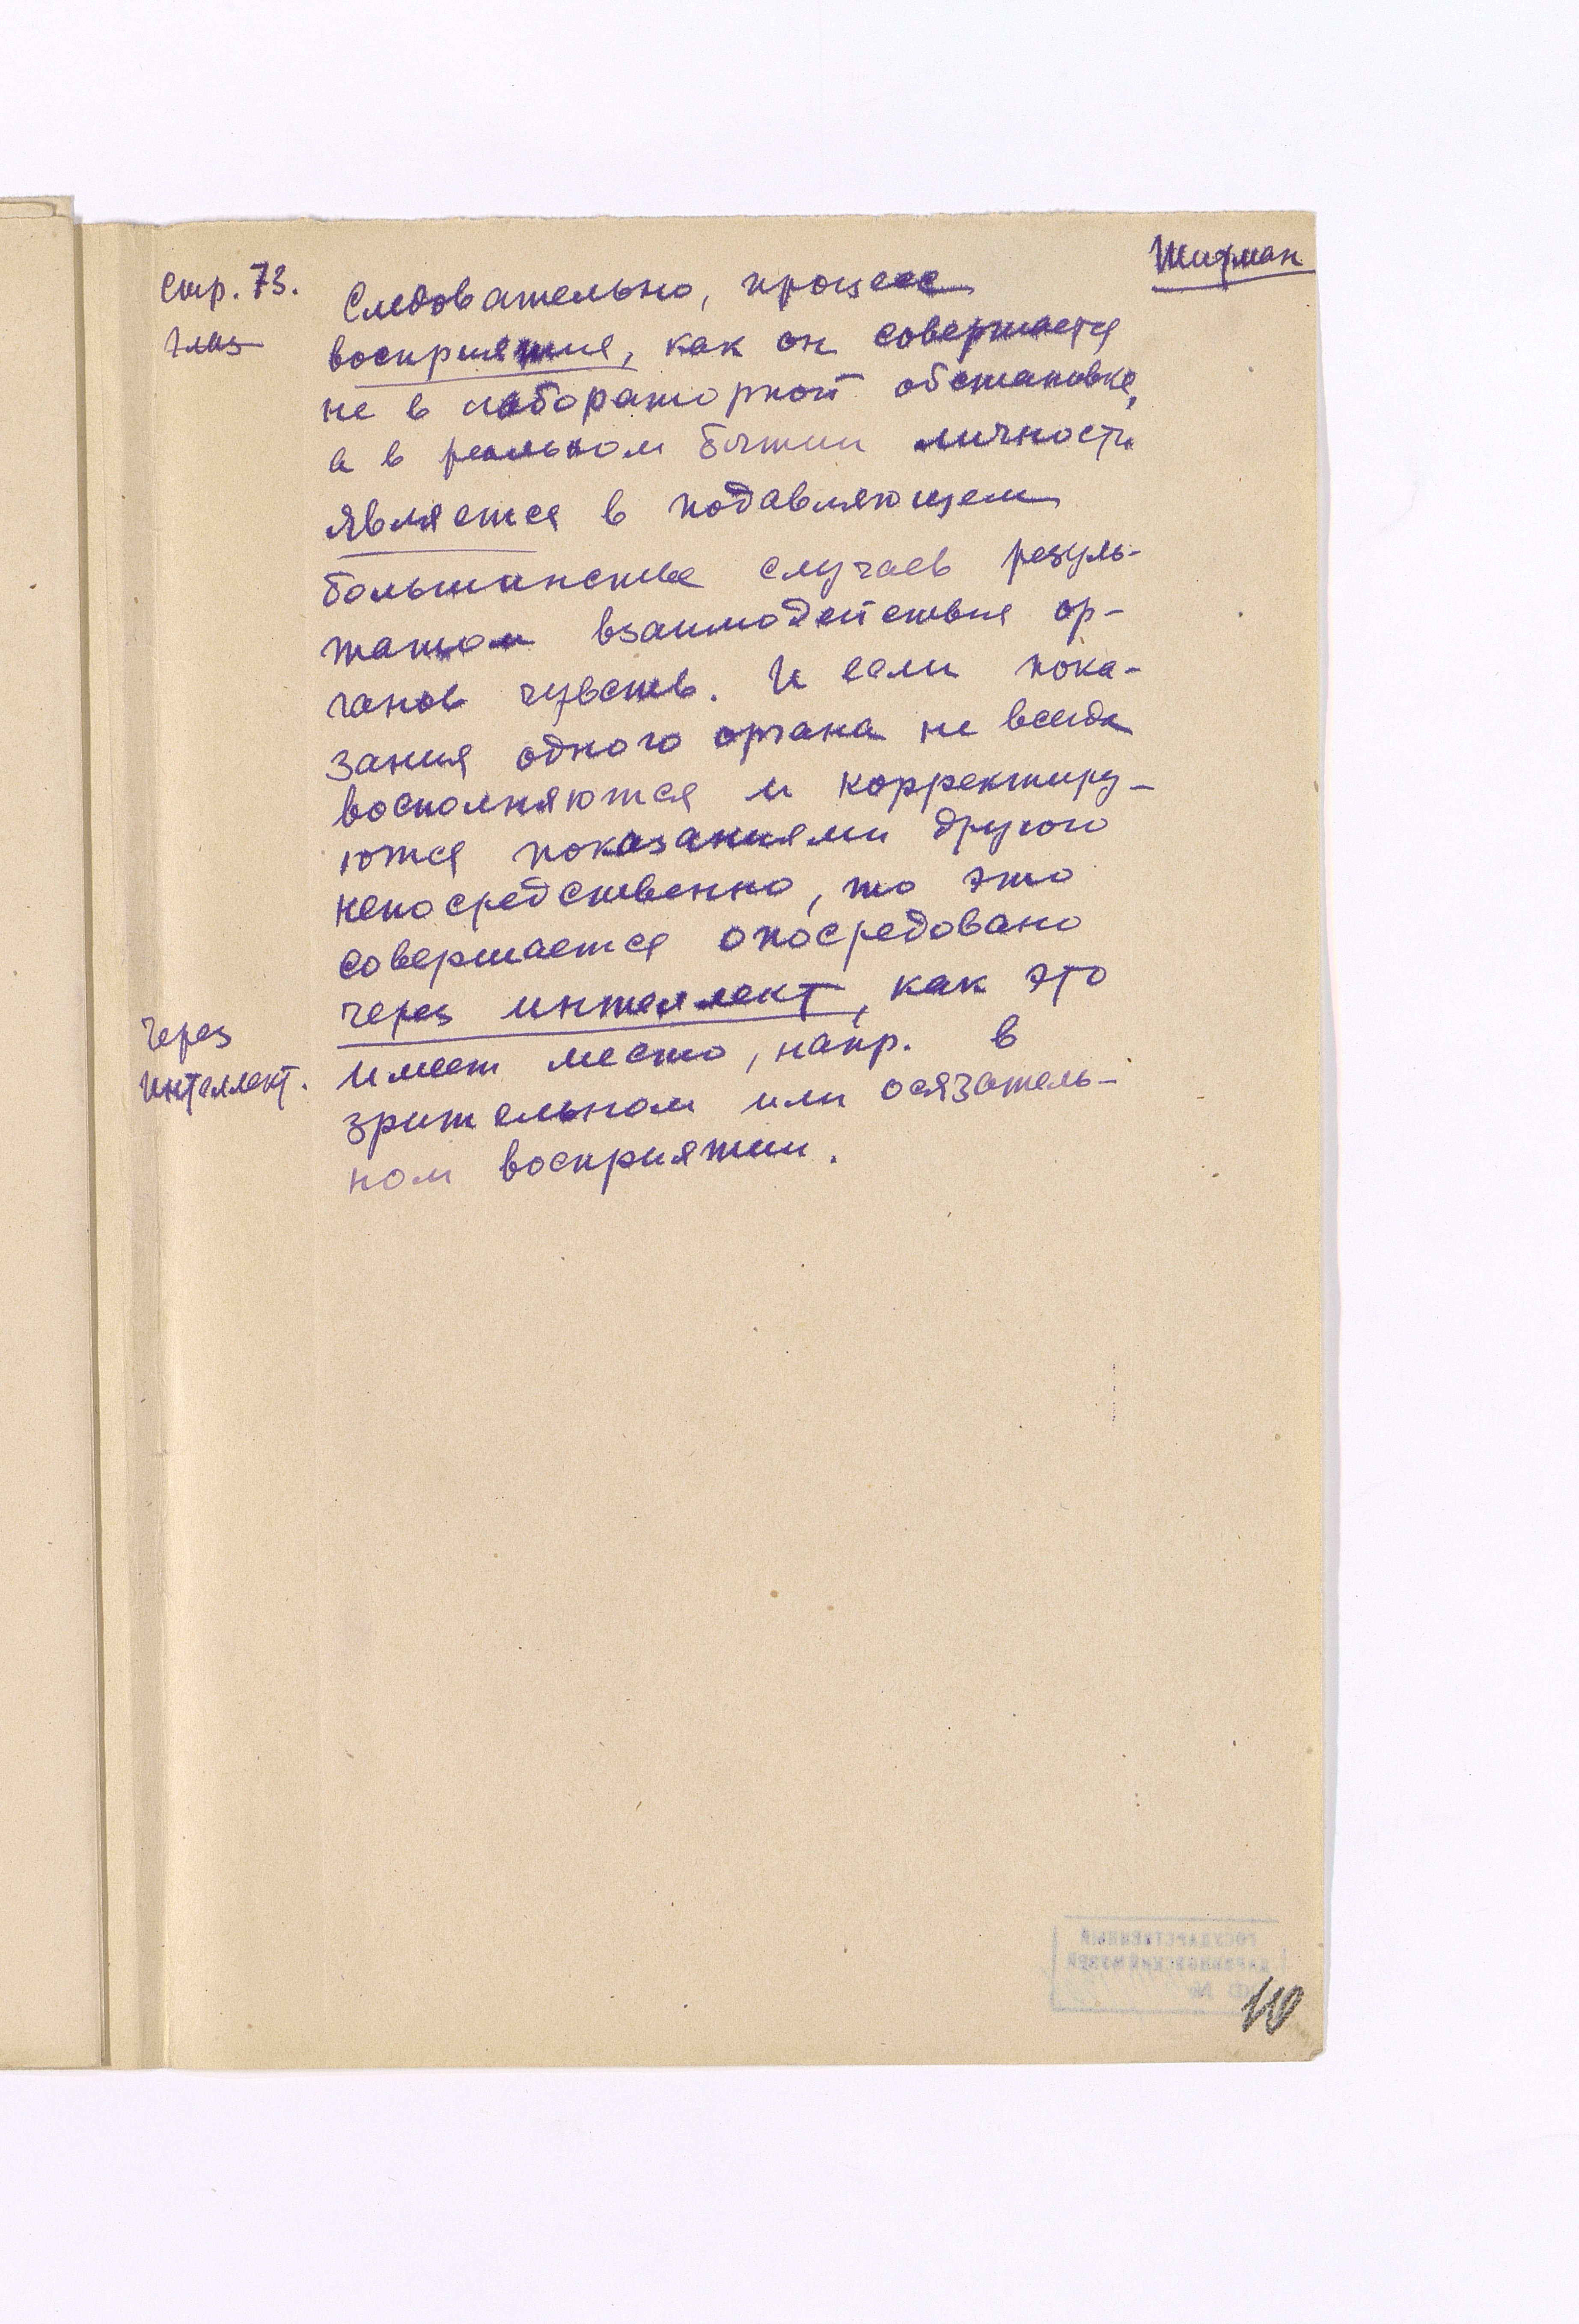 Шифман
стр. 73.
глаз
Следовательно, процесс
восприятия, как он совершается
не в лабораторной обстановке,
а в реальном бытии личности
является в подавляющем
большинстве случаев резуль-
татом взаимодействия ор-
ганов чувств. И если пока-
зания одного органа не всегда
восполняются и корректиру-
ются показаниями другого
непосредственно, то это
совершается опосредовано
через интеллект, как это
через
интеллект.
имеет место, напр. в
зрительном или осязатель-
ном восприятии.
ГОСУДАРСТВЕННЫЙ
ДАРВИНОВСКИЙ МУЗЕЙ
№
110